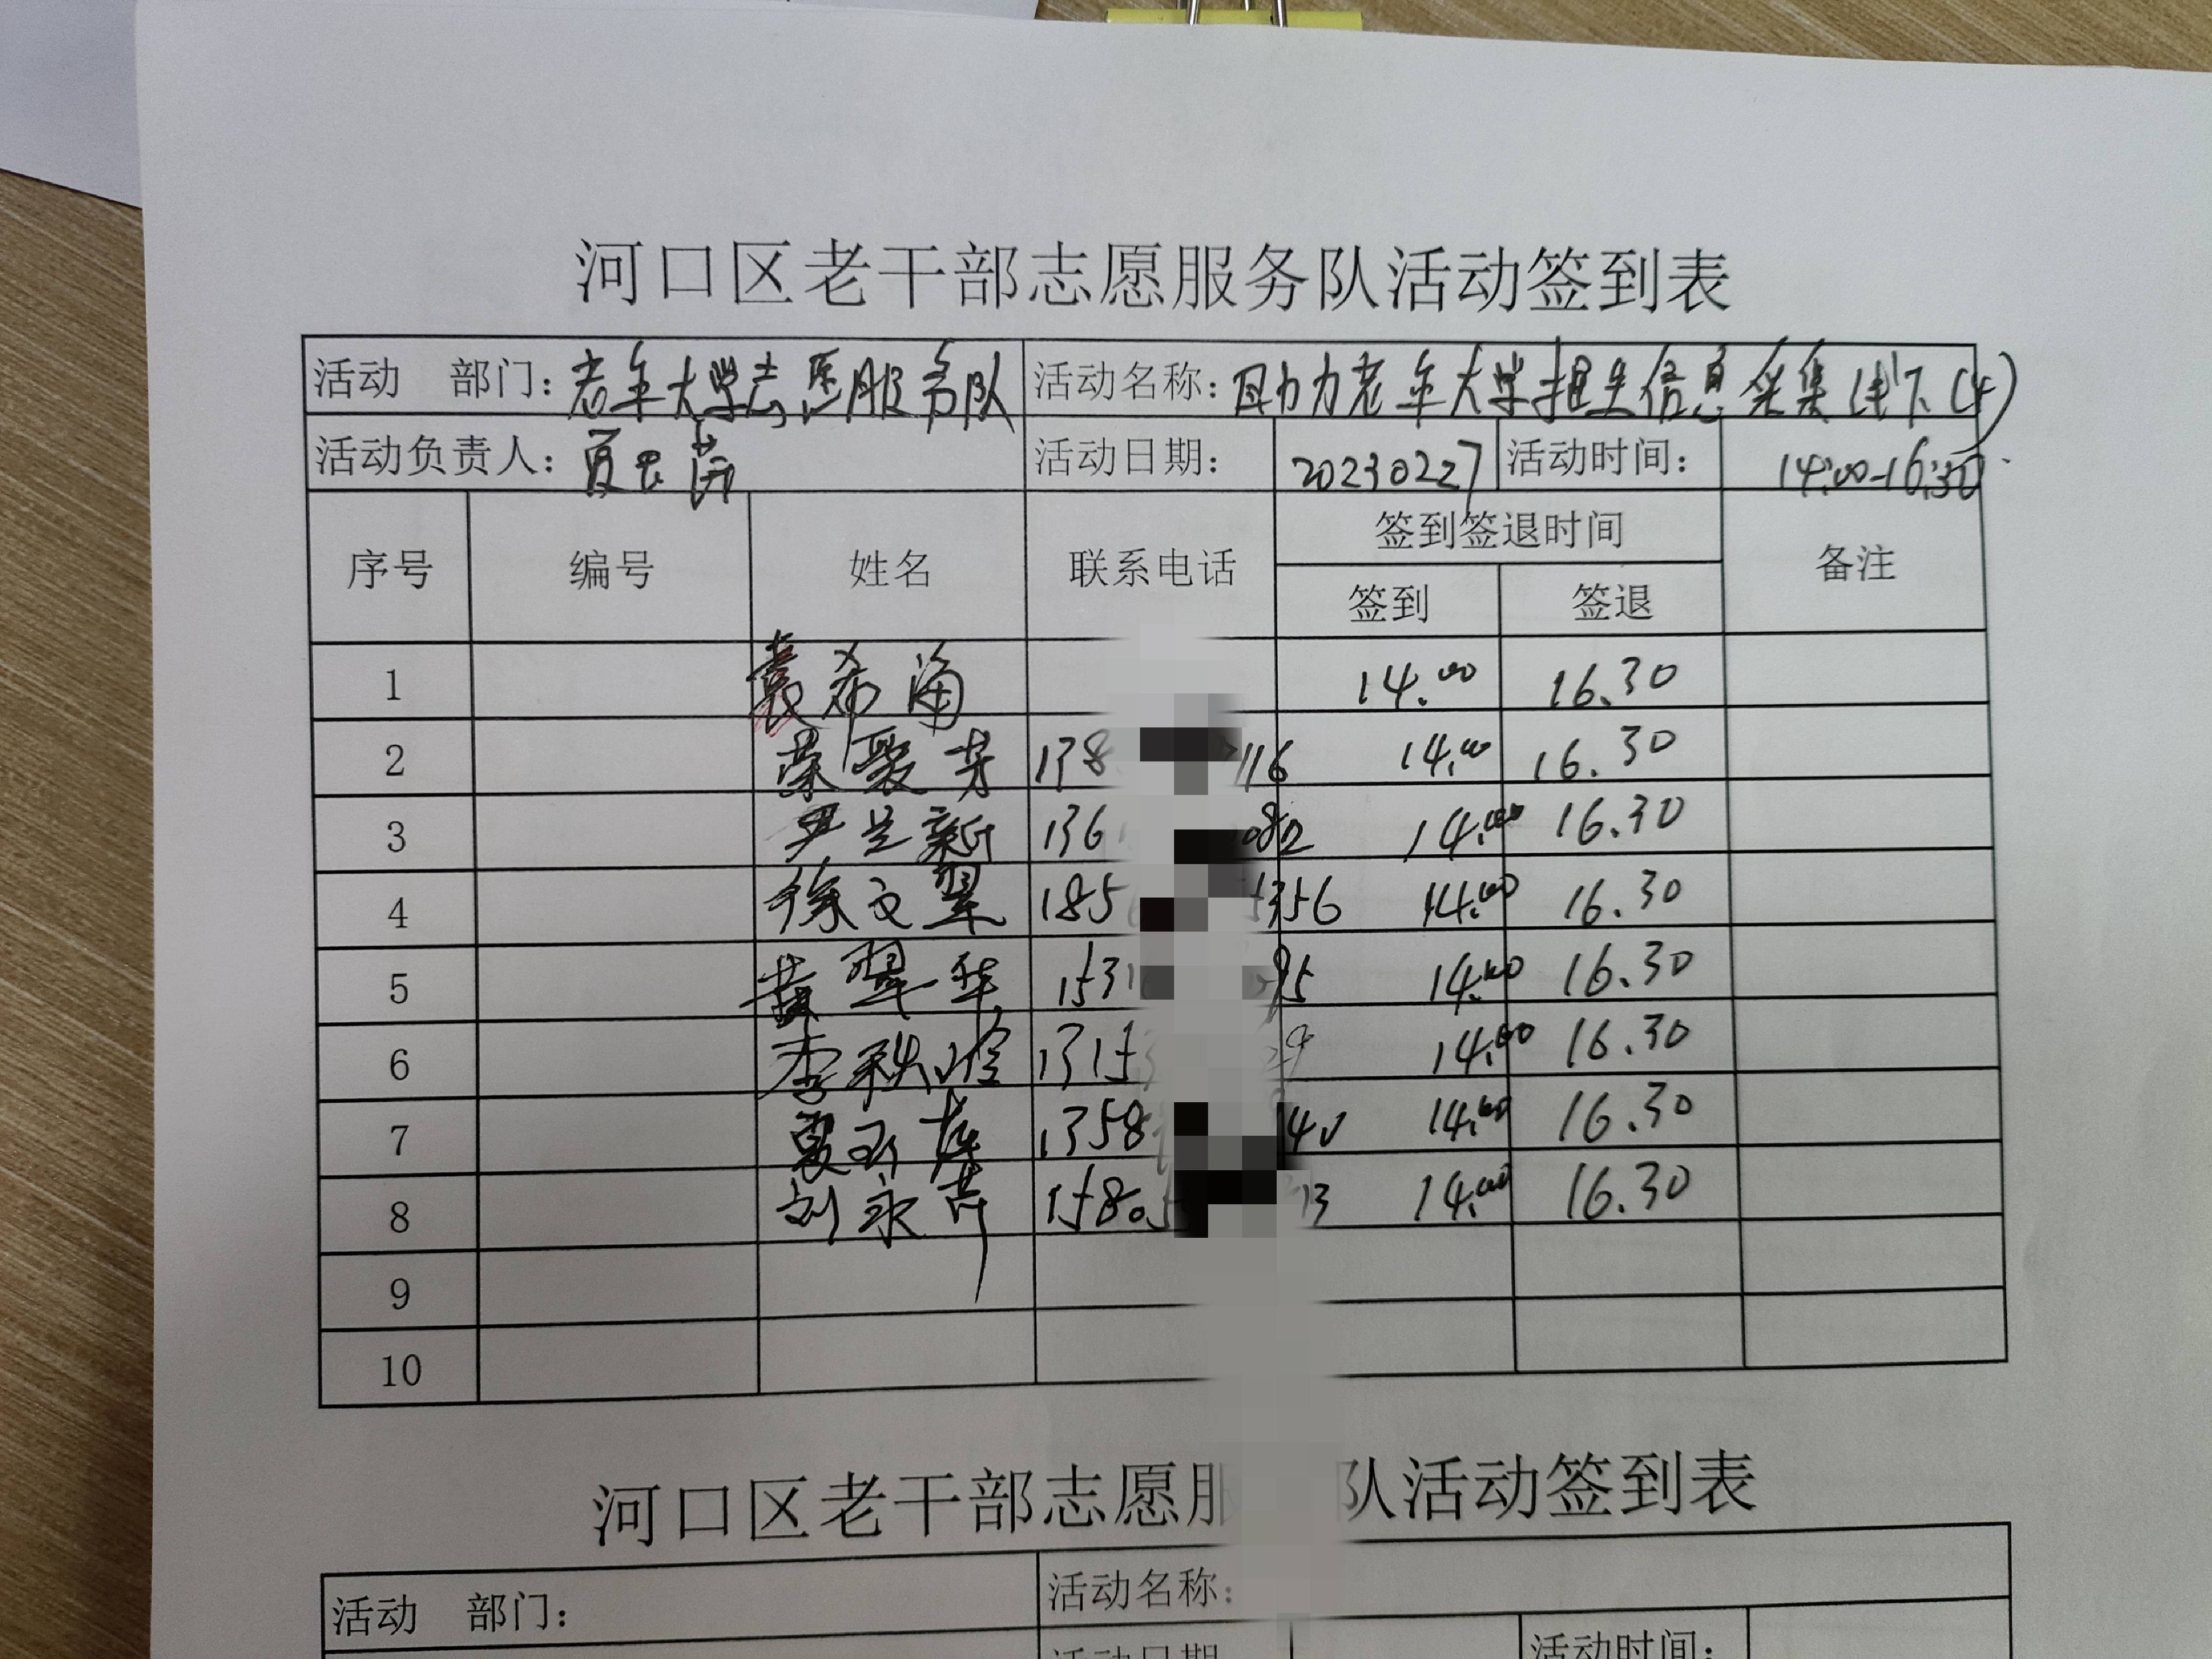 河口区老干部志愿服务队活动签到表
活动 部门：老年大学志愿服务队 活动名称：助力老年大学招生信息采集(线下(4)
活动负责人： 活动日期： 20230227 活动时间： 14:00-16:30
序号 编号 姓名 联系电话 签到签退时间 备注
签到 签退
1 袁希海 14.00 16.30
2 荣聚芳 138 116 14.00 16.30
3 尹兰新 136 082 14.00 16.30
4 徐文翠 185 5356 14.00 16.30
5 黄翠华 1531 95 14.00 16.30
6 李秋玲 1315 29 14.00 16.30
7 夏 萍 1358 14.00 16.30
8 刘永吉 15805 13 14.00 16.30
9
10
河口区老干部志愿服 队活动签到表
活动 部门： 活动名称：
活动日期 活动时间：